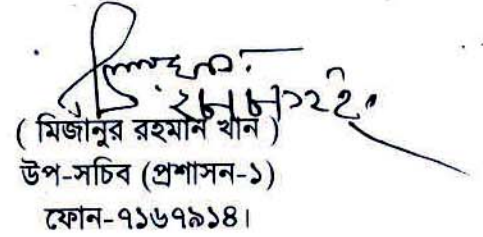 ( মিজানুর রহমান খান )
উপ-সচিব (প্রশাসন-১)
ফোন-৭১৬৭৯১৪।